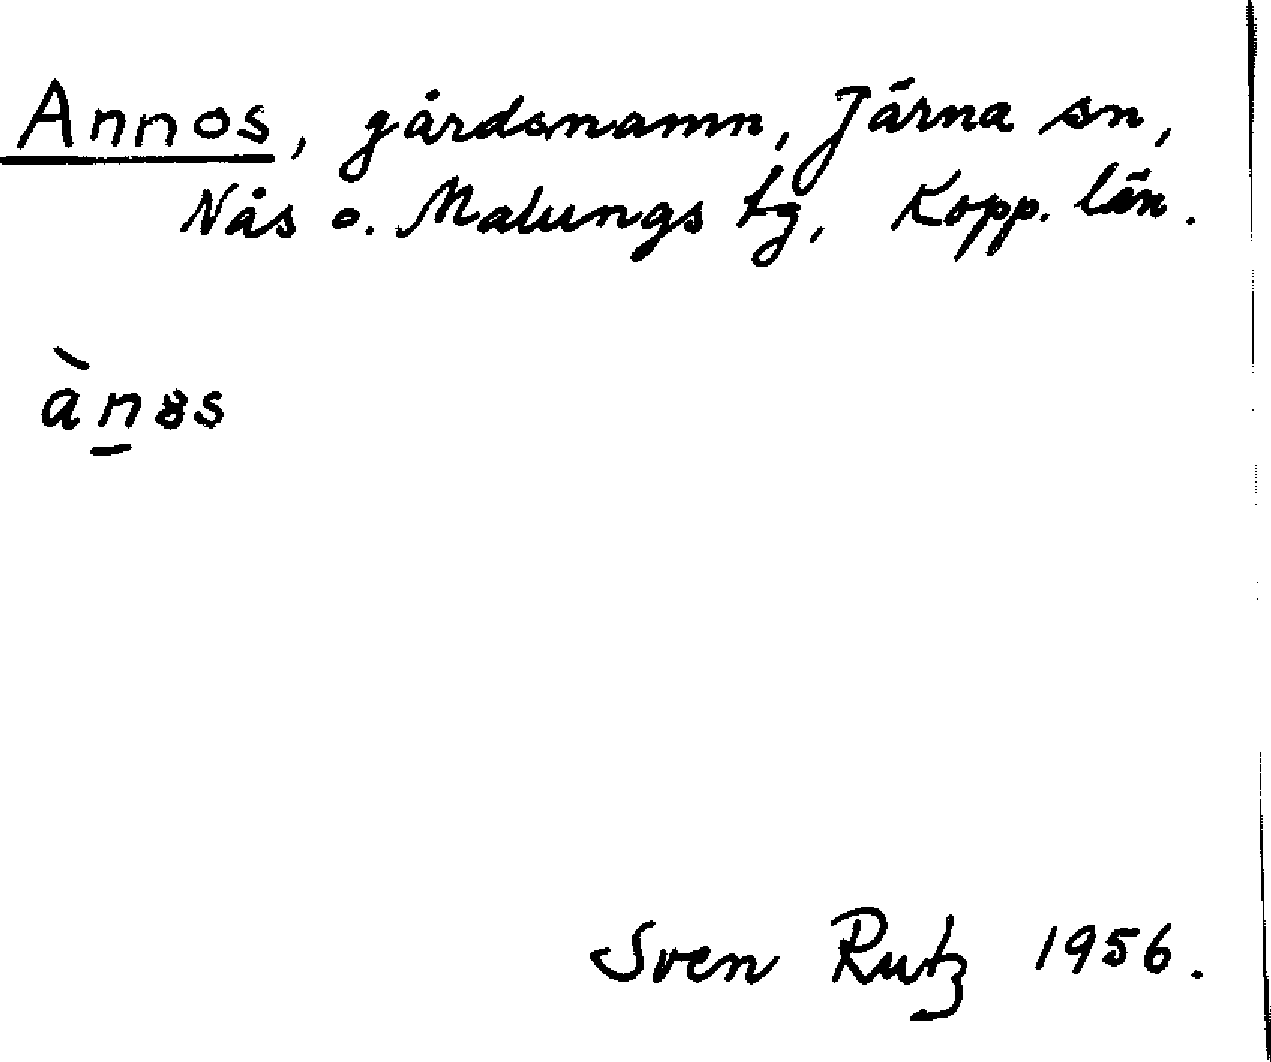 Annos, gårdsnamn, Järna sn,
Nås o. Malungs tg, Kopp. län.
àn̲ȣs
Sven Rutz 1956.